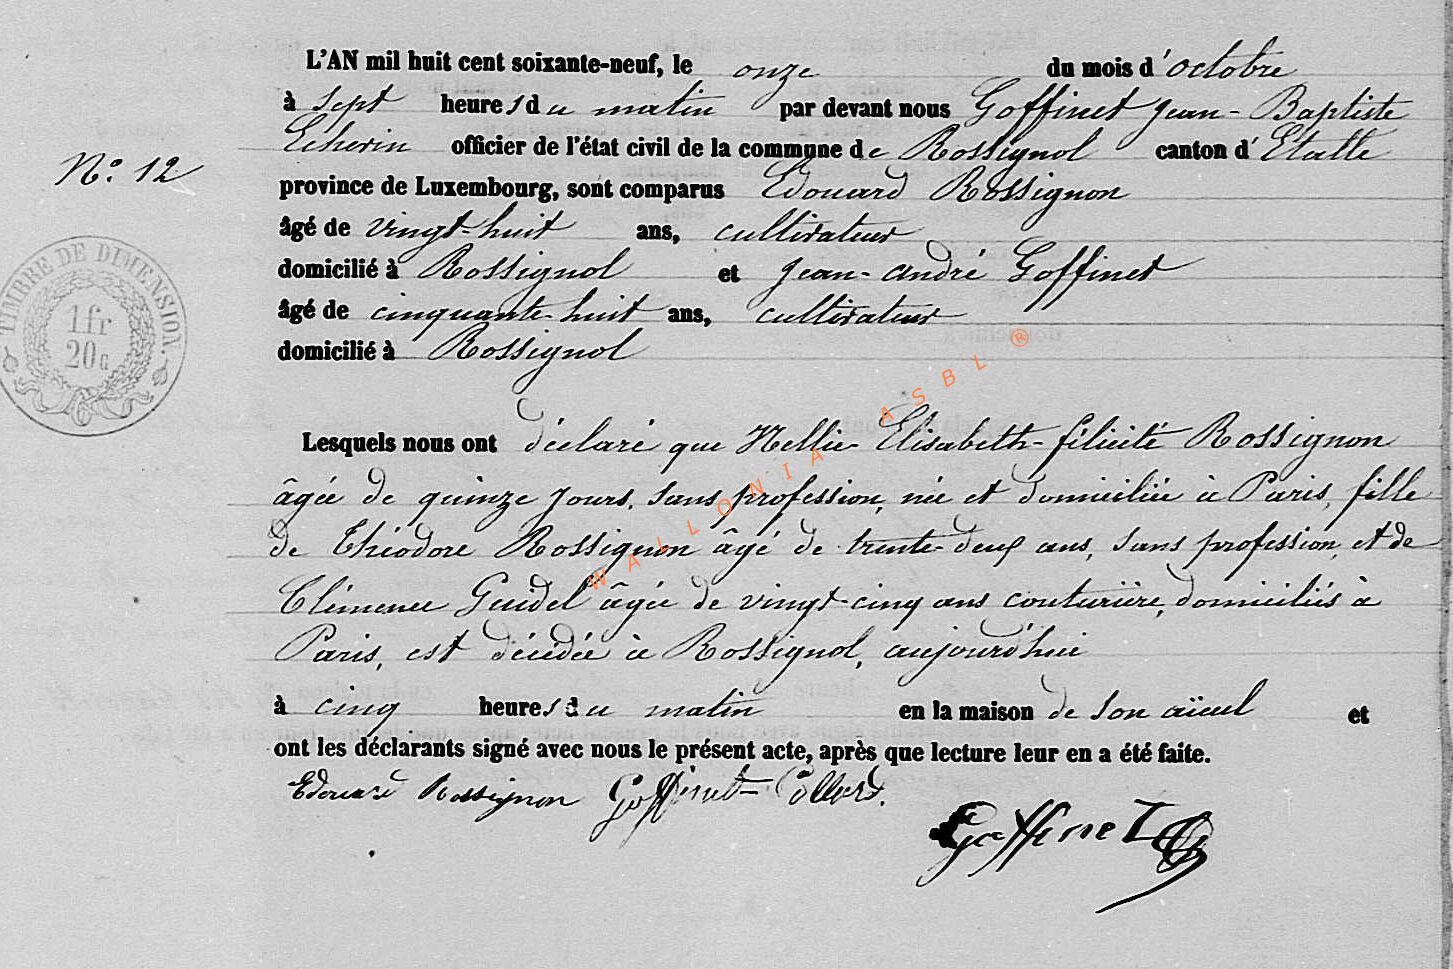 L'AN mil huit cent soixante-neuf, le onze du mois d'octobre
à sept heures du matin par devant nous Goffinet Jean-Baptiste
officier de l'état civil de la commune de Rossignol canton d'Etalle
N.o 12
province de Luxembourg, sont comparus Edouard Rossignon
âgé de vingt-huit ans, cultivateur
domicilié à Rossignol et Jean-andré Goffinet
âgé de cinquante-huit ans, cultivateur
domicilié à Rossignol
TIMBRE DE DIMENSION.
1fr
20c
WALLONIA ASBL ®
Lesquels nous ont déclaré que Nellie-Elisabeth-félicité Rossignon
âgée de quinze jours, sans profession, née et domiciliée à Paris, fille
de Théodore Rossignon âgé de trente-deux ans, sans profession, et de
Clémence Guidel âgée de vingt-cinq ans couturière, domiciliés à
Paris, est décédée à Rossignol, aujourd'hui
à cinq heures du matin en la maison de son aïeul et
ont les déclarants signé avec nous le présent acte, après que lecture leur en a été faite.
Edouard Rossignon Goffinet-Collard.
Goffinet